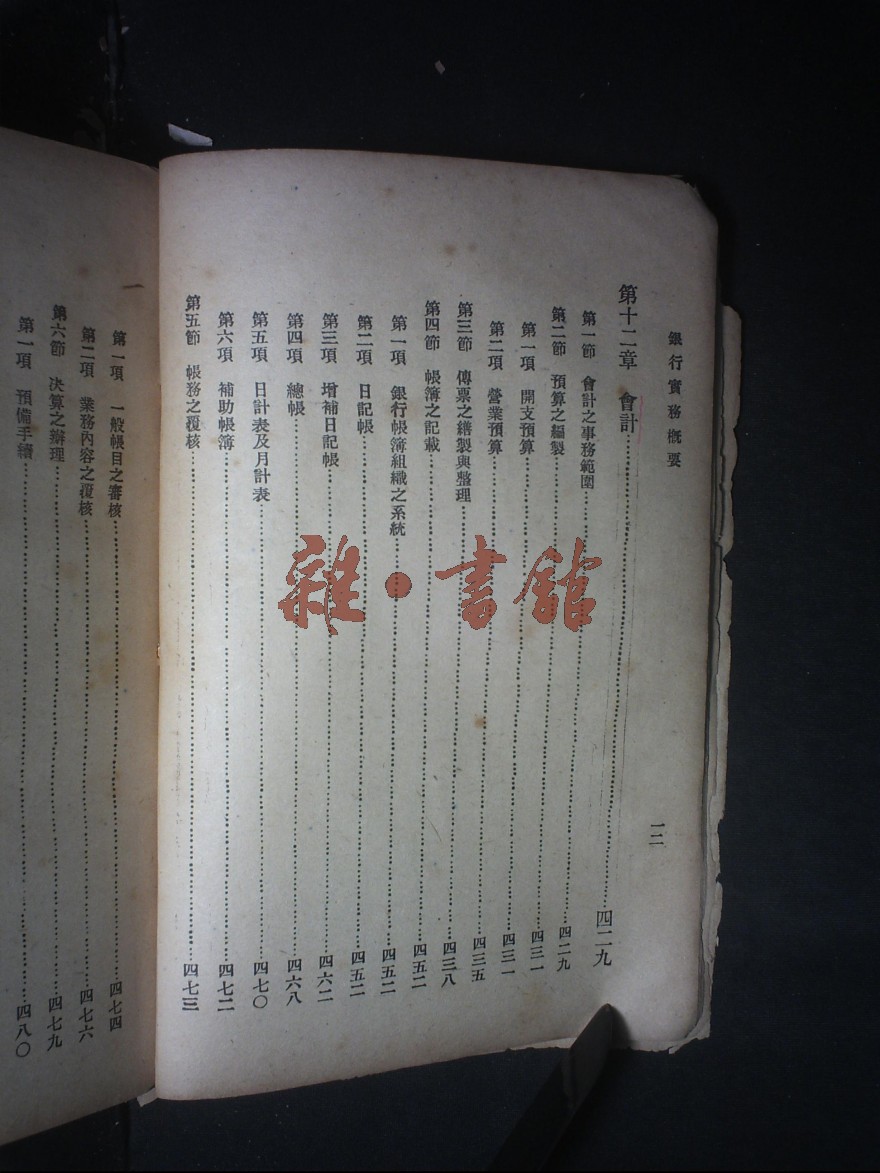 銀行實務概要
一二
第十二章 會計……四二九
第一節 會計之事務範圍……四二九
第二節 預算之編製……四三一
第一項 開支預算……四三一
第二項 營業預算……四三五
第三節 傳票之繕製與整理……四三八
第四節 帳簿之記載……四五二
第一項 銀行帳簿組織之系統……四五二
第二項 日記帳……四五二
第三項 增補日記帳……四六二
第四項 總帳……四六八
第五項 日計表及月計表……四七〇
第六項 補助帳簿……四七二
第五節 帳務之覆核……四七三
第一項 一般帳目之審核……四七四
第二項 業務內容之覆核……四七六
第六節 決算之辦理……四七九
第一項 預備手續……四八〇
雜·書館